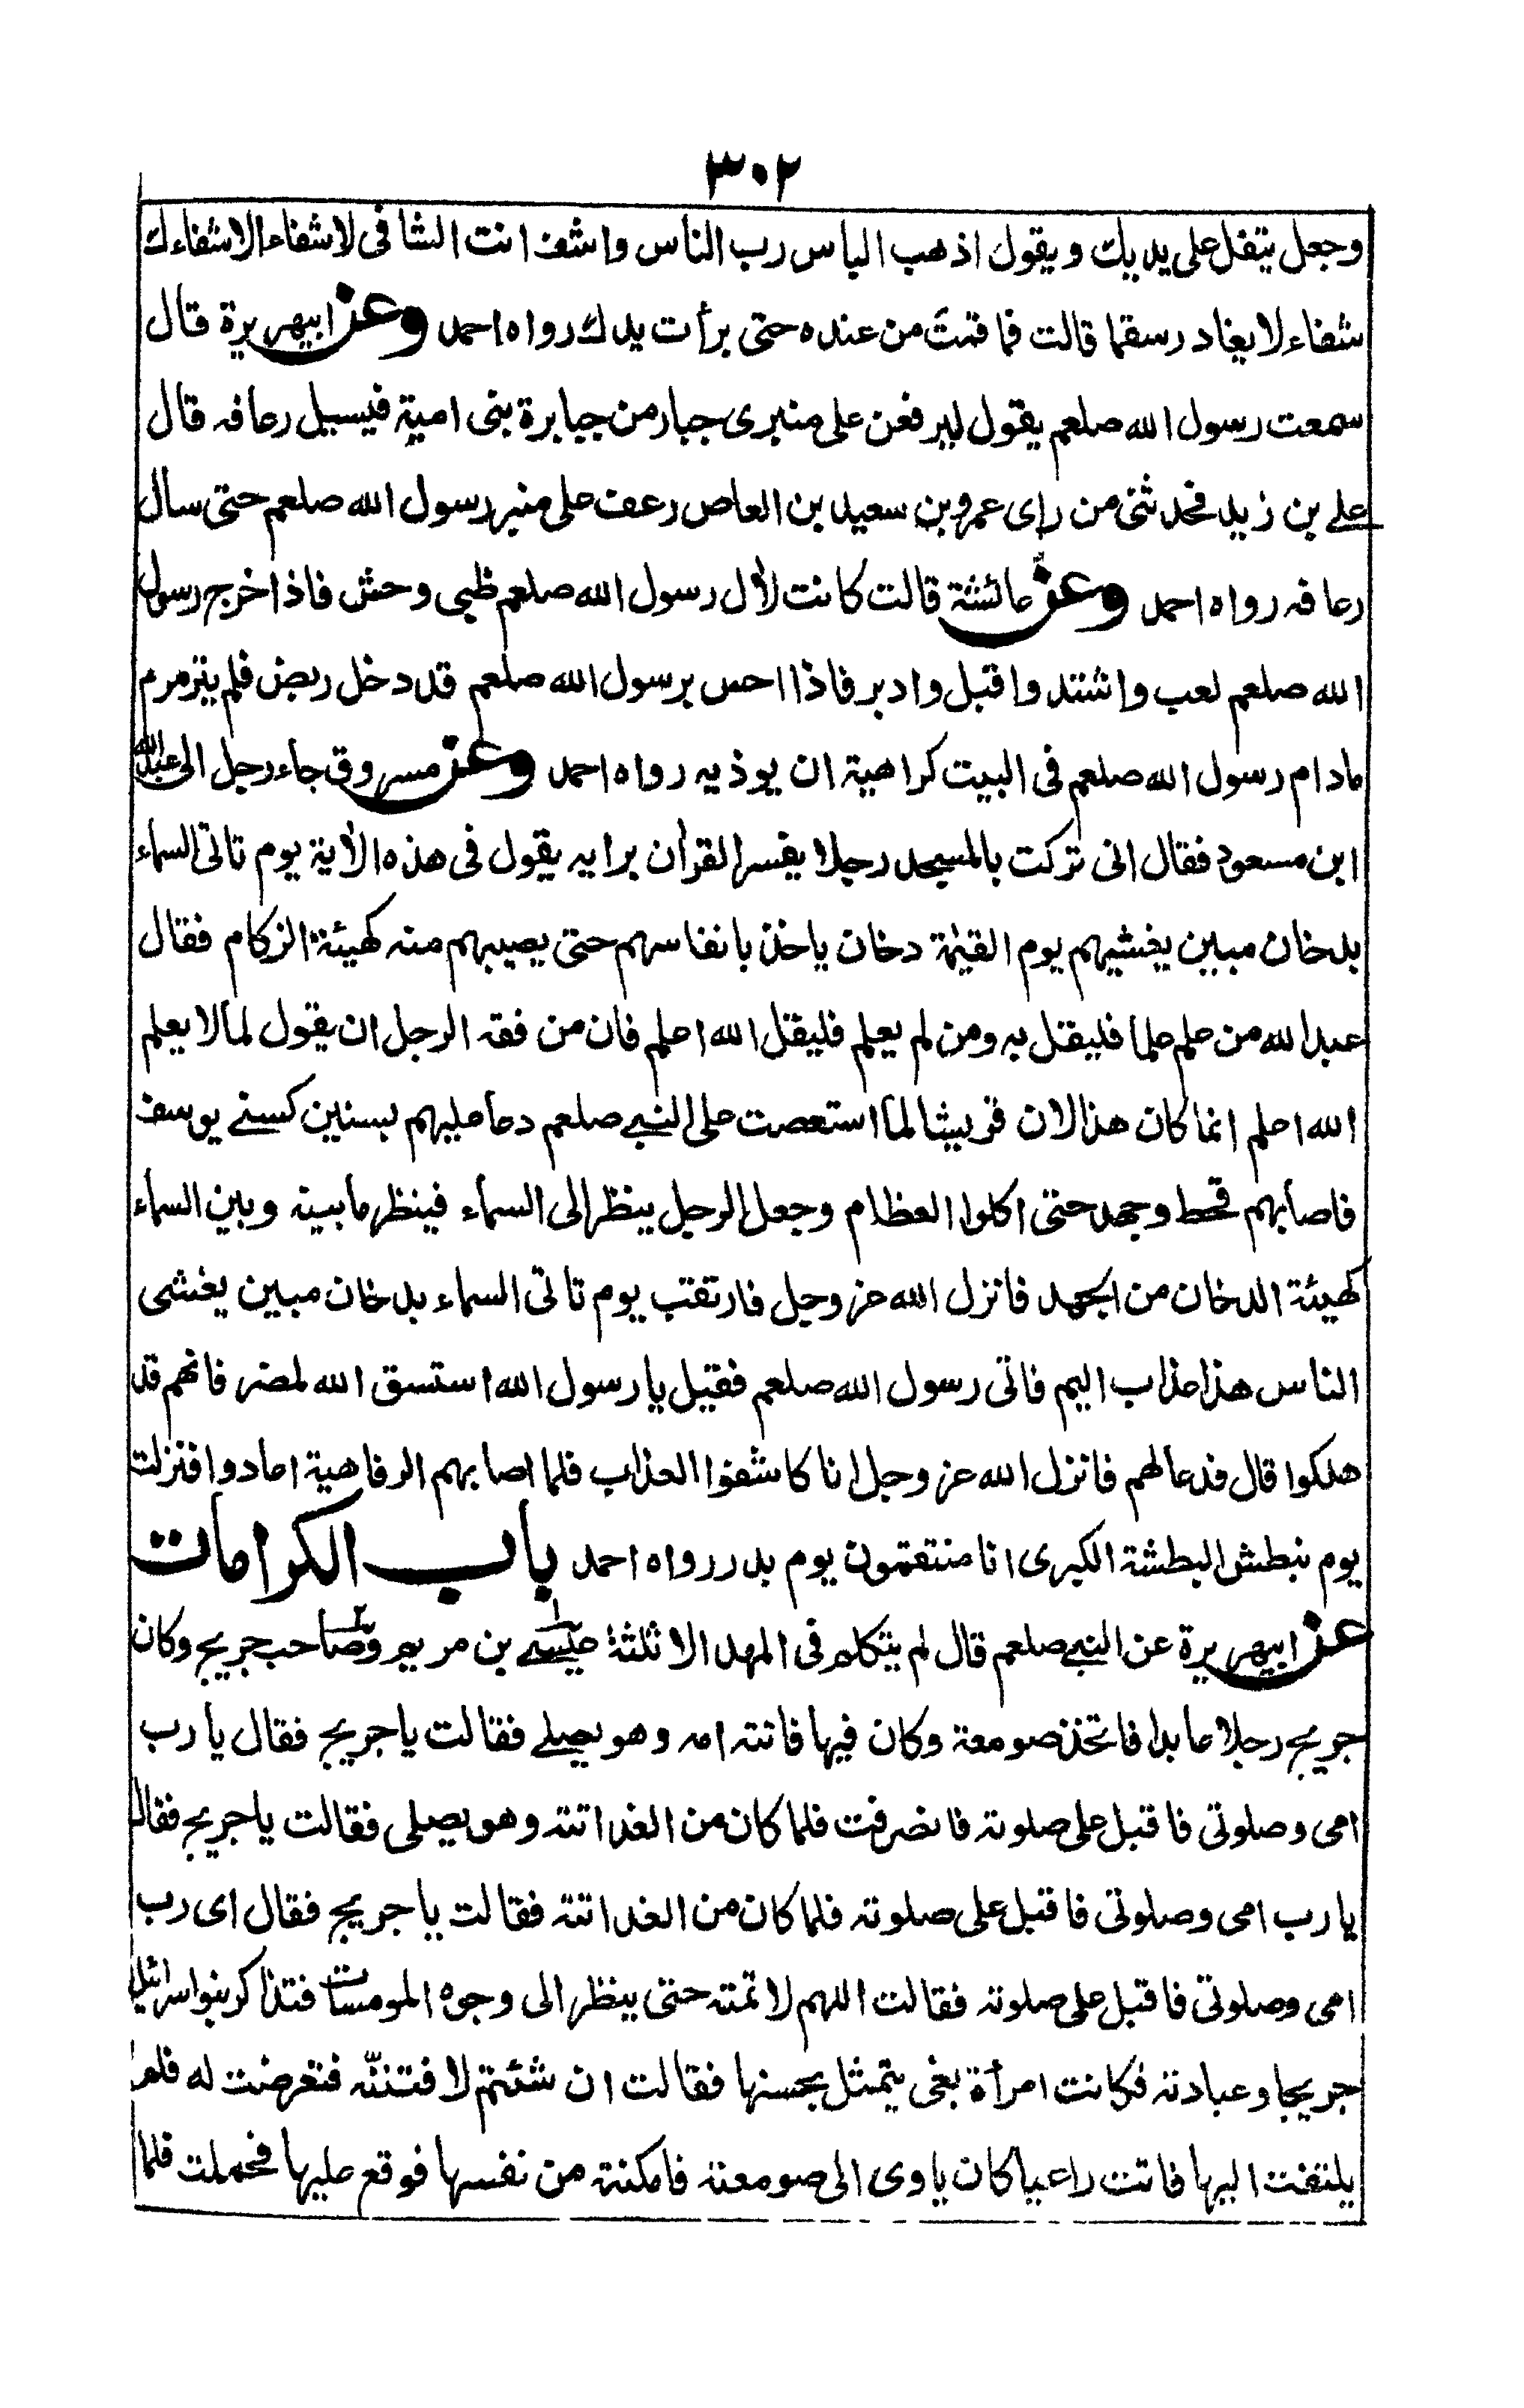 ٣٠٢
وجعل يتفل على يديك ويقول اذهب الباس رب الناس واشف انت الشافى لاشفاء الا شفاءك
شفاء لا يغادر سقما قالت فما قمت من عنده حتى برأت يدك رواه احمد وعن ابيهريرة قال
سمعت رسول الله صلعم يقول ليرفعن على منبرى جبار من جبابرة بنى امية فيسيل رعافه قال
على بن زيد فحدثنى من راى عمرو بن سعيد بن العاص رعف على منبر رسول الله صلعم حتى سال
رعافه رواه احمد وعن عائشة قالت كانت لآل رسول الله صلعم ظبى وحش فاذا خرج رسول
الله صلعم لعب واشتد واقبل وادبر فاذا احس برسول الله صلعم قد دخل ربض فلم يترمرم
مادام رسول الله صلعم فى البيت كراهية ان يوذيه رواه احمد وعن مسروق جاء رجل الى عبد الله
ابن مسعود فقال انى تركت بالمسجد رجلا يفسر القرأن برايه يقول فى هذه الأية يوم تاتى السماء
بدخان مبين يغشيهم يوم القيٰمة دخان ياخذ بانفاسهم حتى يصيبهم منه كهيئة الزكام فقال
عبد الله من علم علما فليقل به ومن لم يعلم فليقل الله اعلم فان من فقه الرجل ان يقول لما لا يعلم
الله اعلم انما كان هذا لان قريشا لما استعصت على النبى صلعم دعا عليهم بسنين كسنى يوسف
فاصابهم قحط وجهد حتى اكلوا العظام وجعل الرجل ينظر الى السماء فينظر ما بينه وبين السماء
كهيئة الدخان من الجهد فانزل الله عز وجل فارتقب يوم تاتى السماء بدخان مبين يغشى
الناس هذا عذاب اليم فاتى رسول الله صلعم فقيل يا رسول الله استسق الله لمضر فانهم قد
هلكوا قال فدعا لهم فانزل الله عز وجل انا كاشفوا العذاب فلما اصابهم الرفاهية عادوا فنزلت
يوم نبطش البطشة الكبرى انا منتقمون يوم بدر رواه احمد باب الكرامات
عن ابيهريرة عن النبى صلعم قال لم يتكلم فى المهد الا ثلثة عيسى بن مريم وصاحب جريج وكان
جريج رجلا عابدا فاتخذ صومعة وكان فيها فاتته امه وهو يصلى فقالت يا جريج فقال يا رب
امى وصلوتى فاقبل على صلوته فانصرفت فلما كان من الغد اتته وهو يصلى فقالت يا جريج فقال
يا رب امى وصلوتى فاقبل على صلوته فلما كان من الغد اتته فقالت يا جريج فقال اى رب
امى وصلوتى فاقبل على صلوته فقالت اللهم لا تمته حتى ينظر الى وجوه المومسات فتذاكر بنو اسرائيل
جريجا وعبادته فكانت امرأة بغى يتمثل بحسنها فقالت ان شئتم لافتننّه فتعرضت له فلم
يلتفت اليها فاتت راعيا كان ياوى الى صومعته فامكنته من نفسها فوقع عليها فحملت فلما